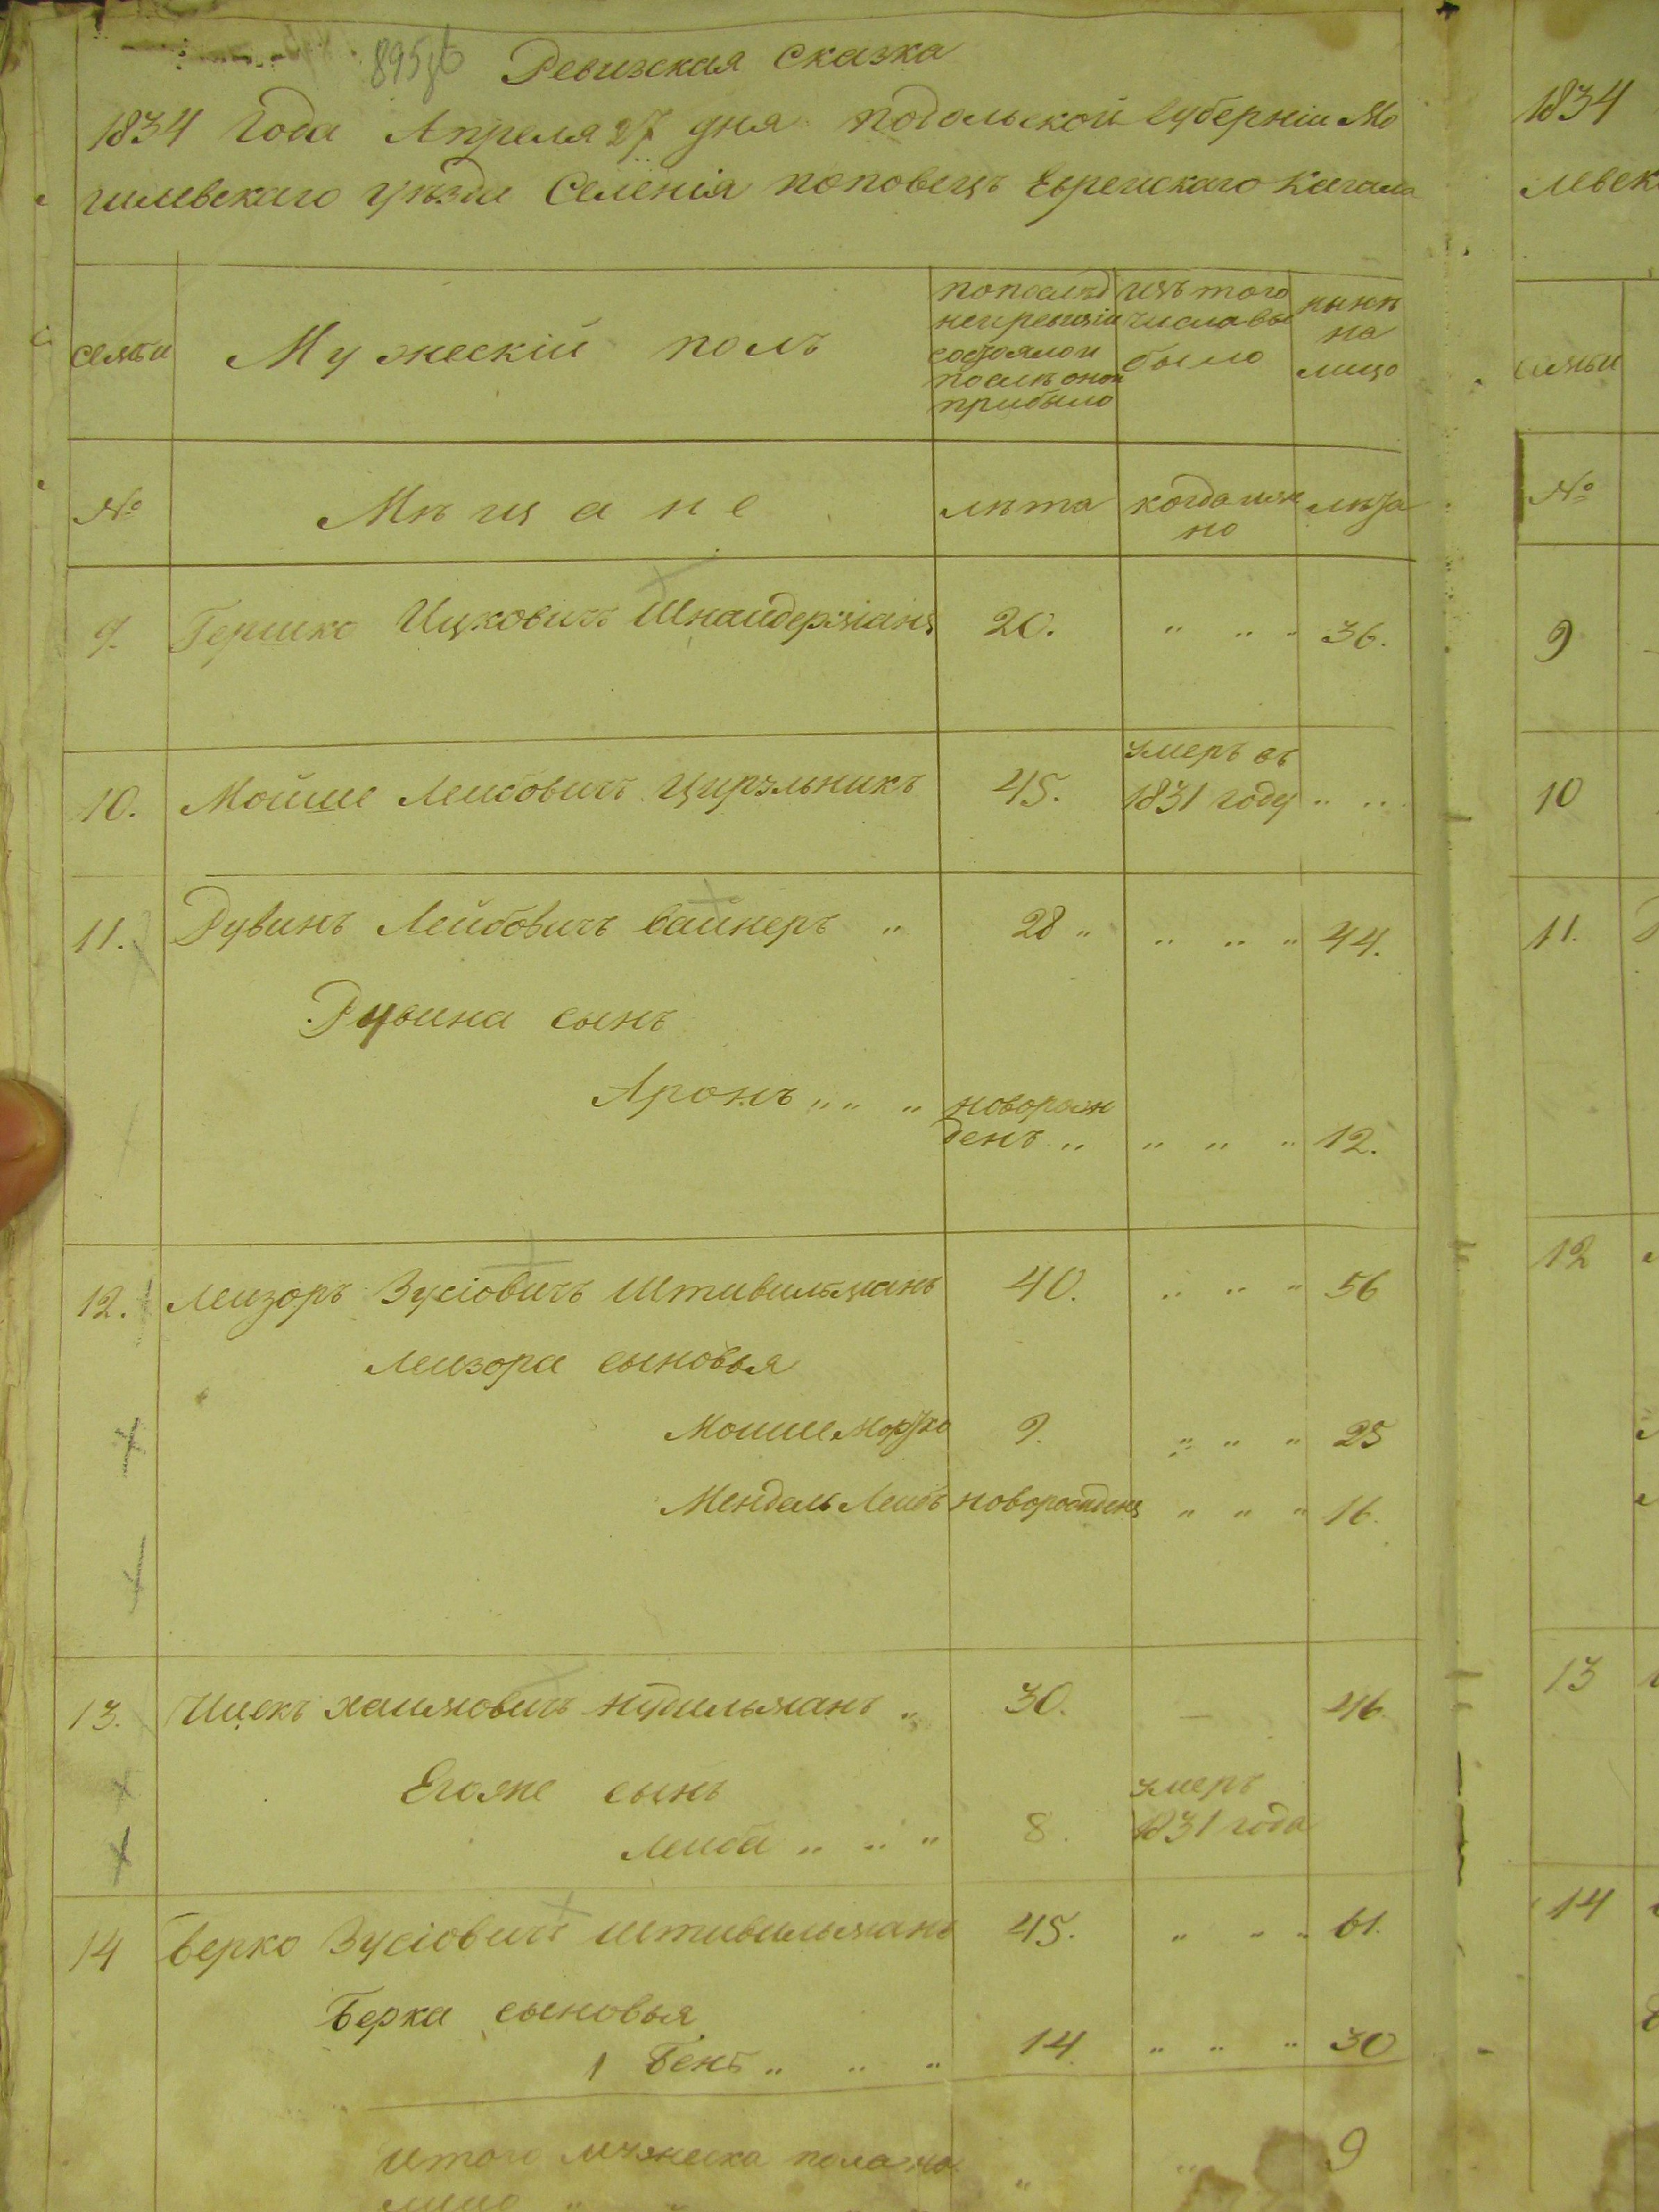 Ревизская сказка
1834 Года Апреля 27 дня подольской губерніи Мо
гилевскаго уѣзда Селенія поповецъ Еврейскаго Кагала
семьи
Мужескій полъ
попослѣд
ней ревизіи
состояло и
послѣ оной
прибыло
изъ того
числа вы
было
нынѣ
на
лицо
№
Мѣщане
лѣта
когда имя
но
лѣта
9. Гершко Ицковичъ Шнайдерманъ 20. " " " 36.
10. Мойше Лейбовичъ Цирульникъ 45. умеръ въ
1831 году " "
11. Рувинъ Лейбовичъ Вайнеръ " 28 " " " " 44.
Рувина сынъ
Аронъ " " " новорож
денъ " " " " 12.
12. Лейзоръ Зусіовичъ Штивильманъ 40. " " " 56
Лейзора сыновья
Мошше Мортко 9. " " " 25
Мендель Лейбъ новорожденъ " " " 16.
13. Ицекъ Хаимовичъ Нудильманъ " 30. — 46.
Егоже сынъ
Лейба " " " 8. умеръ
1831 года
14 Берко Зусіовичъ Штивильманъ 45. " " " 61.
Берка сыновья
1 Бенъ " " " 14. " " " 30
Итого мужеска пола на
лицо " " " " 9
1834
левск
семьи
№
9
10
11.
12
13
14